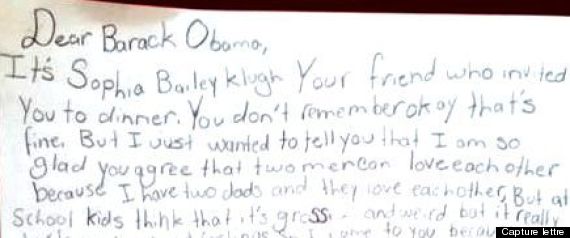 Dear Barack Obama,
It's Sophia Bailey Klugh Your friend who invited
You to dinner. You don't remember okay that's
fine. But I just wanted to tell you that I am so
glad you agree that two men can love each other
because I have two dads and they love each other, But at
School kids think that it's gross and weird but it really
to you
Capture lettre